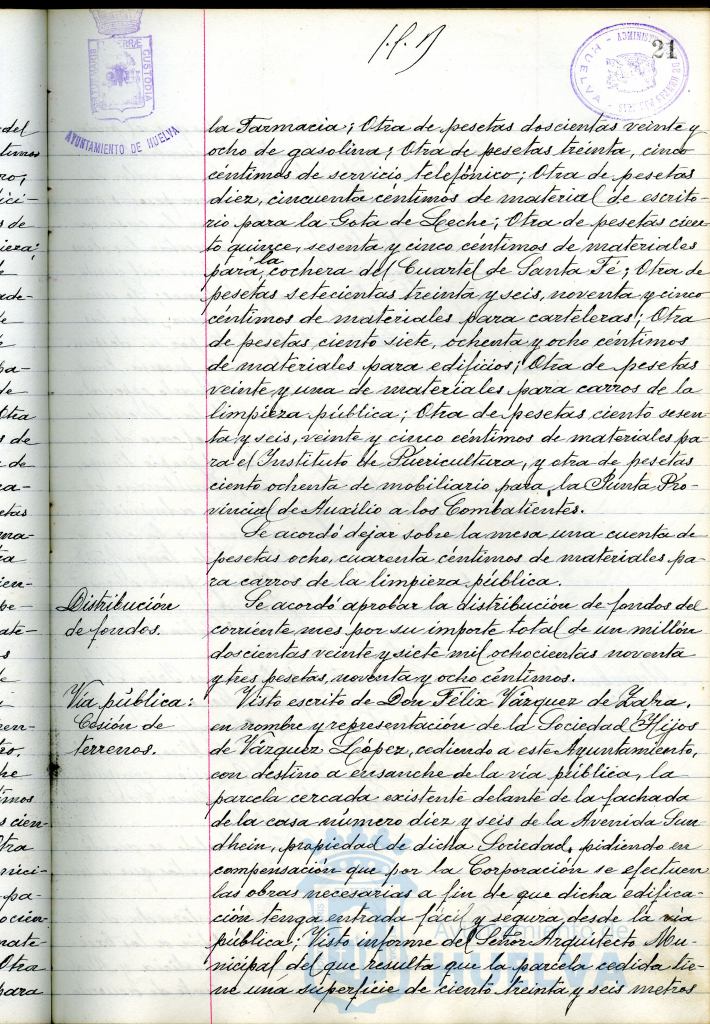 21
AYUNTAMIENTO DE HUELVA
CUSTODIA
HUELVA
la Farmacia; Otra de pesetas doscientas veinte y
ocho de gasolina; Otra de pesetas treinta, cinco
centimos de servicio telefónico; Otra de pesetas
diez, cincuenta céntimos de material de escrito-
rio para la Gota de Leche; Otra de pesetas cien-
to quince, sesenta y cinco céntimos de materiales
para la cochera del Cuartel de Santa Fé; Otra de
pesetas setecientas treinta y seis, noventa y cinco
céntimos de materiales para carteleras; Otra
de pesetas ciento siete, ochenta y ocho céntimos
de materiales para edificios; Otra de pesetas
veinte y una de materiales para carros de la
limpieza pública; Otra de pesetas ciento sesen
ta y seis, veinte y cinco céntimos de materiales pa-
ra el Instituto de Puericultura, y otra de pesetas
ciento ochenta de mobiliario para la Junta Pro-
vincial de Auxilio a los Combatientes.
Se acordó dejar sobre la mesa una cuenta de
pesetas ocho, cuarenta céntimos de materiales pa-
ra carros de la limpieza pública.
Distribución
de fondos.
Se acordó aprobar la distribución de fondos del
corriente mes por su importe total de un millón
doscientas veinte y siete mil ochocientas noventa
y tres pesetas, noventa y ocho céntimos.
Vía pública:
Cesión de
terrenos.
Visto escrito de Don Félix Vázquez de Zafra,
en nombre y representación de la Sociedad Hijos
de Vázquez López, cediendo a este Ayuntamiento,
con destino a ensanche de la vía pública, la
parcela cercada existente delante de la fachada
de la casa número diez y seis de la Avenida Sun
dhein, propiedad de dicha Sociedad, pidiendo en
compensación que por la Corporación se efectuen
las obras necesarias a fin de que dicha edifica-
ción tenga entrada fácil y segura desde la vía
pública; Visto informe del Señor Arquitecto Mu-
nicipal del que resulta que la parcela cedida tie-
ne una superficie de ciento treinta y seis metros
Ayuntamiento de
HUELVA